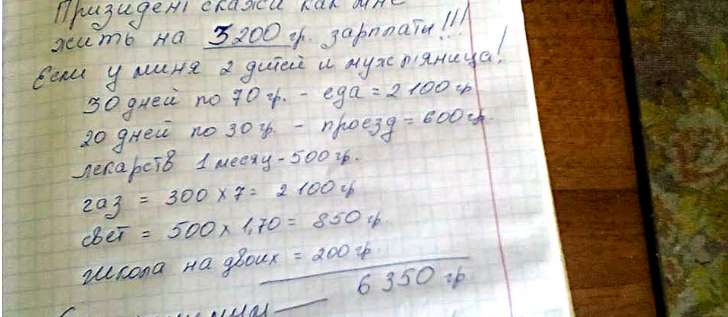 Призидент скажи как мне
жить на 3200 гр. зарплаты!!!
Если у миня 2 дитей и мухспяница!
30 дней по 70 гр. - еда = 2100 гр
20 дней по 30 гр. - проезд = 600 гр.
лекарств 1 месяц - 500 гр.
газ = 300 х 7 = 2100 гр
свет = 500 х 1,70 = 850 гр
школа на двоих = 200 гр.
6350 гр